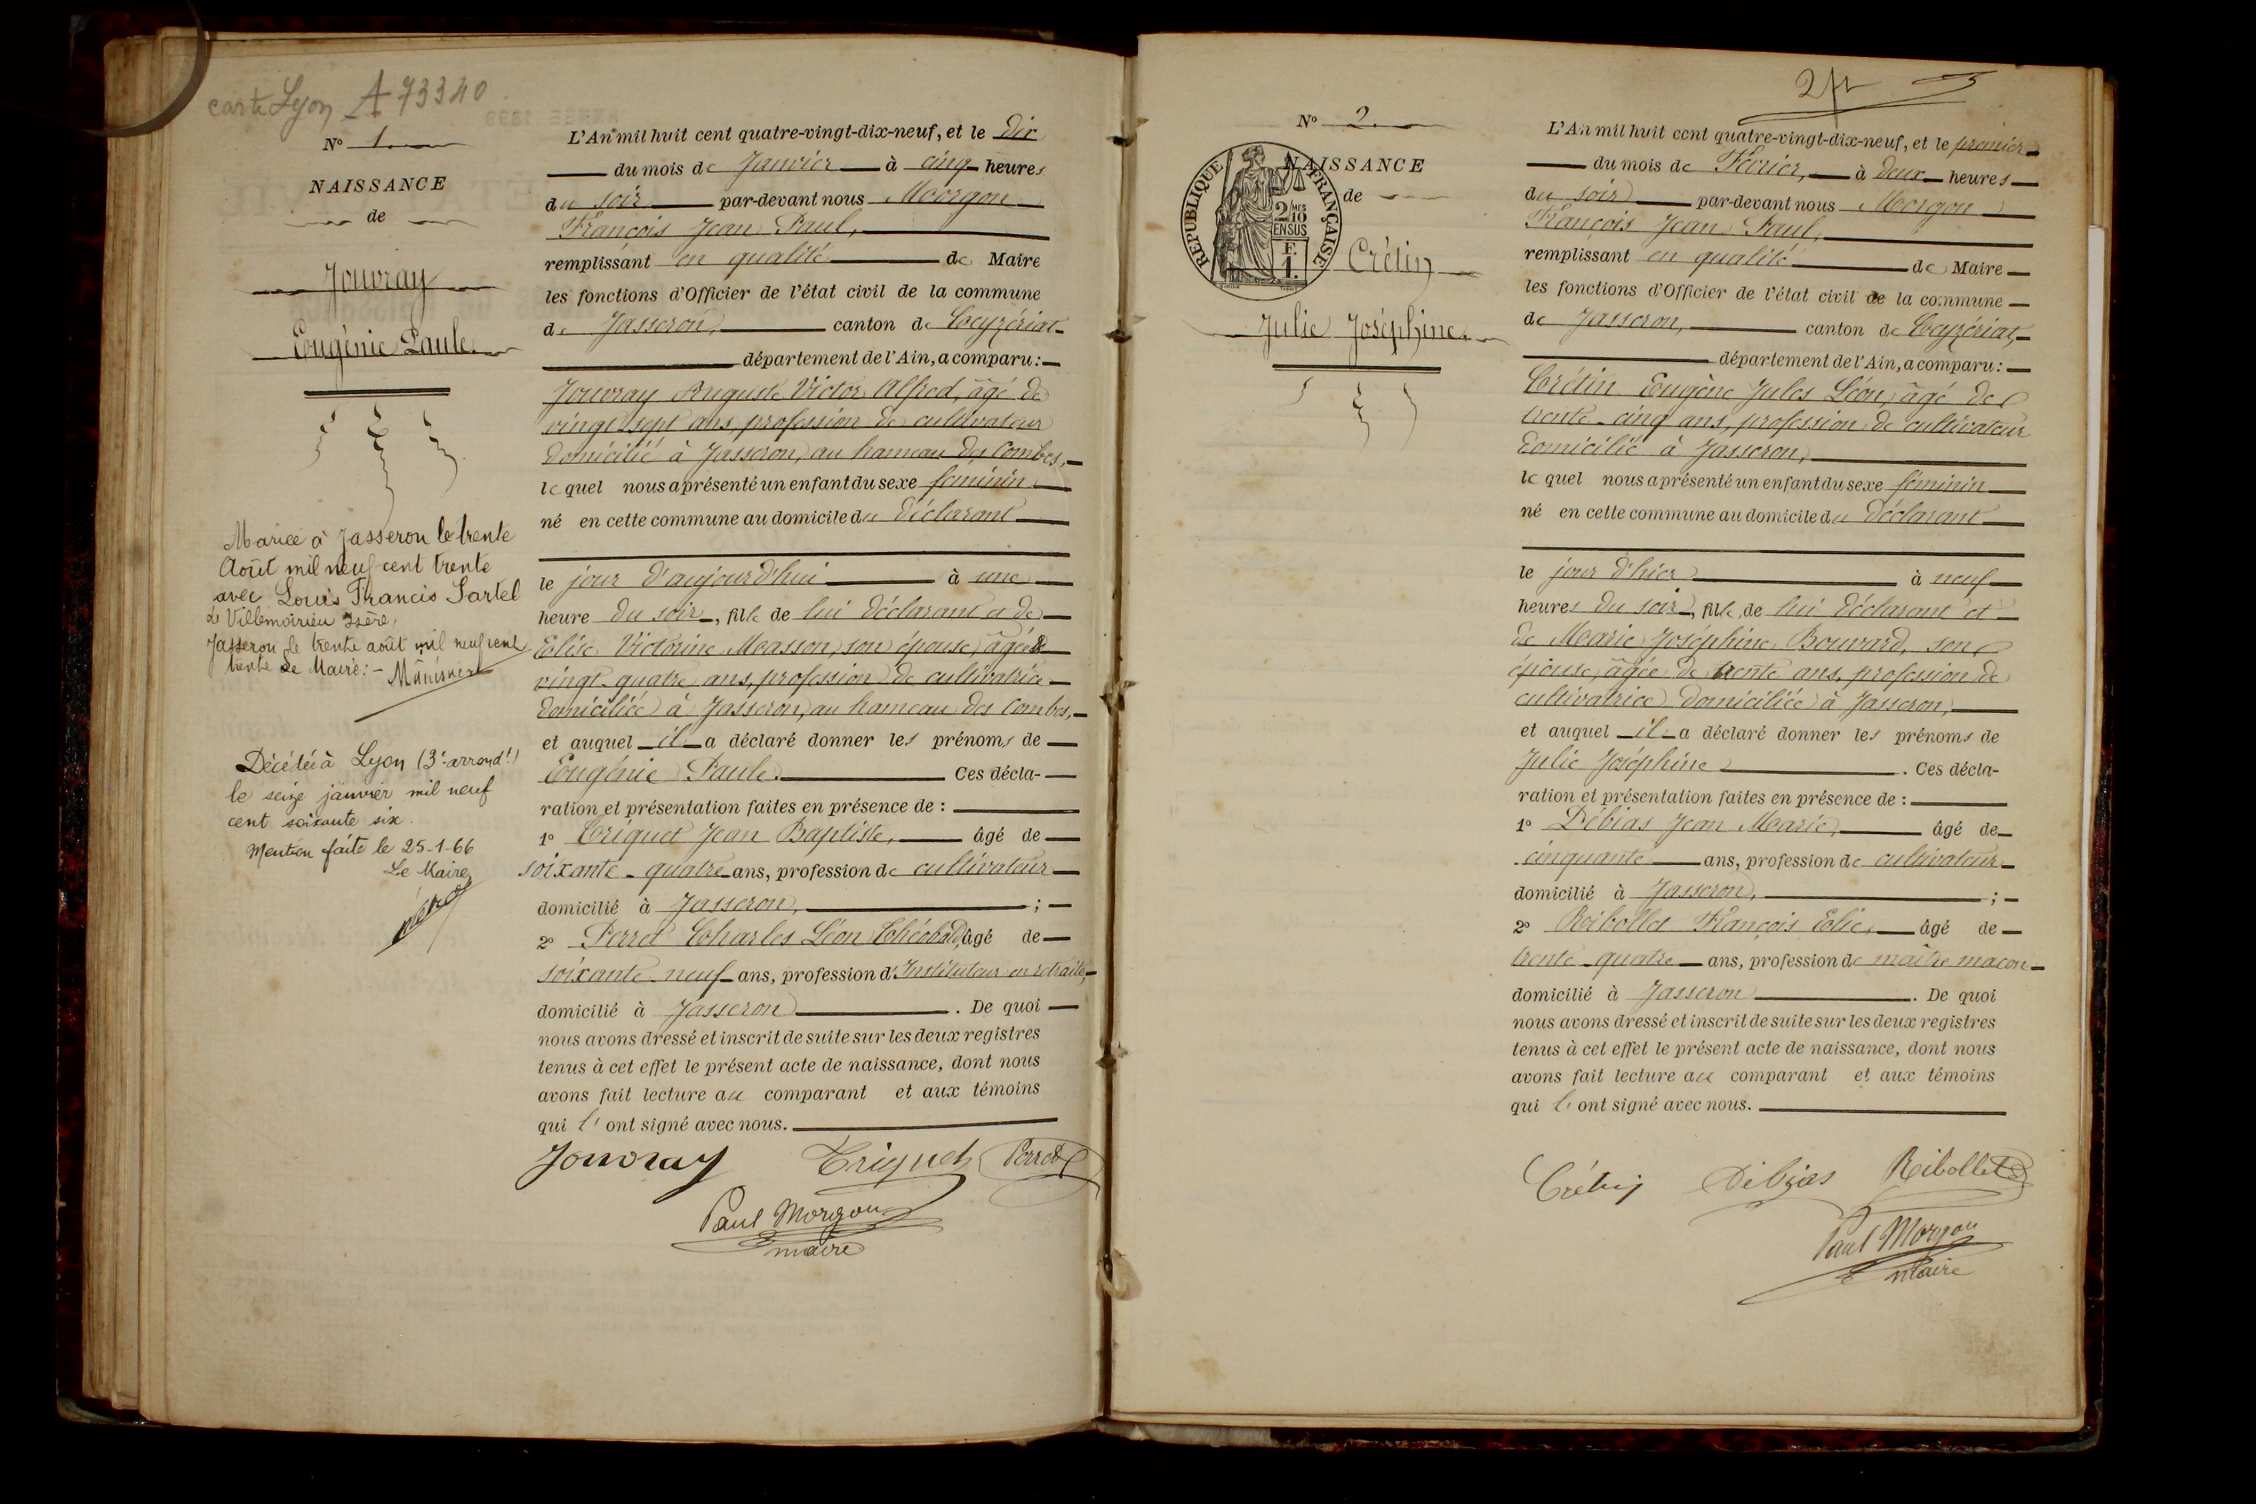 carte Lyon A 73340
N° 1.
NAISSANCE
de
Jouvray
Eugénie Paule.
Mariée à Jasseron le trente
Août mil neuf cent trente
avec Louis Francis Sartel
de Villemoirieu Isère,
Jasseron le trente août mil neuf cent
trente Le Maire: -
Décédée à Lyon (3e arrondt)
le seize janvier mil neuf
cent soixante six.
Mention faite le 25-1-66
Le Maire
L'An mil huit cent quatre-vingt-dix-neuf, et le dix
du mois de Janvier à cinq heures
du soir par-devant nous Morgon
François Jean Paul,
remplissant en qualité de Maire
les fonctions d'Officier de l'état civil de la commune
de Jasseron, canton de Ceyzériat
département de l'Ain, a comparu:
Jouvray Auguste Victor Alfred, âgé de
vingt-sept ans, profession de cultivateur
domicilié à Jasseron, au hameau des Combes,
lequel nous a présenté un enfant du sexe féminin
né en cette commune au domicile du déclarant
le jour d'aujourd'hui à une
heure du soir, fille de lui déclarant et de
Elise Victorine Masson, son épouse, âgée de
vingt-quatre ans, profession de cultivatrice
domiciliée à Jasseron, au hameau des Combes,
et auquel il a déclaré donner les prénoms de
Eugénie Paule. Ces décla-
ration et présentation faites en présence de :
1° Triquet Jean Baptiste, âgé de
soixante-quatre ans, profession de cultivateur
domicilié à Jasseron, ;
2° Perret Charles Léon Théobald, âgé de
soixante-neuf ans, profession d'Instituteur en retraite,
domicilié à Jasseron . De quoi
nous avons dressé et inscrit de suite sur les deux registres
tenus à cet effet le présent acte de naissance, dont nous
avons fait lecture au comparant et aux témoins
qui l'ont signé avec nous.
Jouvray Triquet Perret
Paul Morgon
maire
N° 2.
NAISSANCE
de
RÉPUBLIQUE FRANÇAISE
2/10 MES
EN SUS
F.
1.
Crétin
Julie Joséphine.
L'An mil huit cent quatre-vingt-dix-neuf, et le premier
du mois de Février, à deux heures
du soir par-devant nous Morgon
François Jean Paul,
remplissant en qualité de Maire
les fonctions d'Officier de l'état civil de la commune
de Jasseron, canton de Ceyzériat,
département de l'Ain, a comparu:
Crétin Eugène Jules Léon, âgé de
trente-cinq ans, profession de cultivateur
domicilié à Jasseron,
lequel nous a présenté un enfant du sexe féminin
né en cette commune au domicile du déclarant
le jour d'hier à neuf
heures du soir, fille de lui déclarant et
de Marie Joséphine Bouvard, son
épouse, âgée de trente ans, profession de
cultivatrice domiciliée à Jasseron,
et auquel il a déclaré donner les prénoms de
Julie Joséphine . Ces décla-
ration et présentation faites en présence de :
1° Débias Jean Marie, âgé de
cinquante ans, profession de cultivateur
domicilié à Jasseron, ;
2° Reibollet François Elie, âgé de
trente-quatre ans, profession de maître maçon
domicilié à Jasseron . De quoi
nous avons dressé et inscrit de suite sur les deux registres
tenus à cet effet le présent acte de naissance, dont nous
avons fait lecture au comparant et aux témoins
qui l'ont signé avec nous.
Crétin Débias Reibollet
Paul Morgon
maire